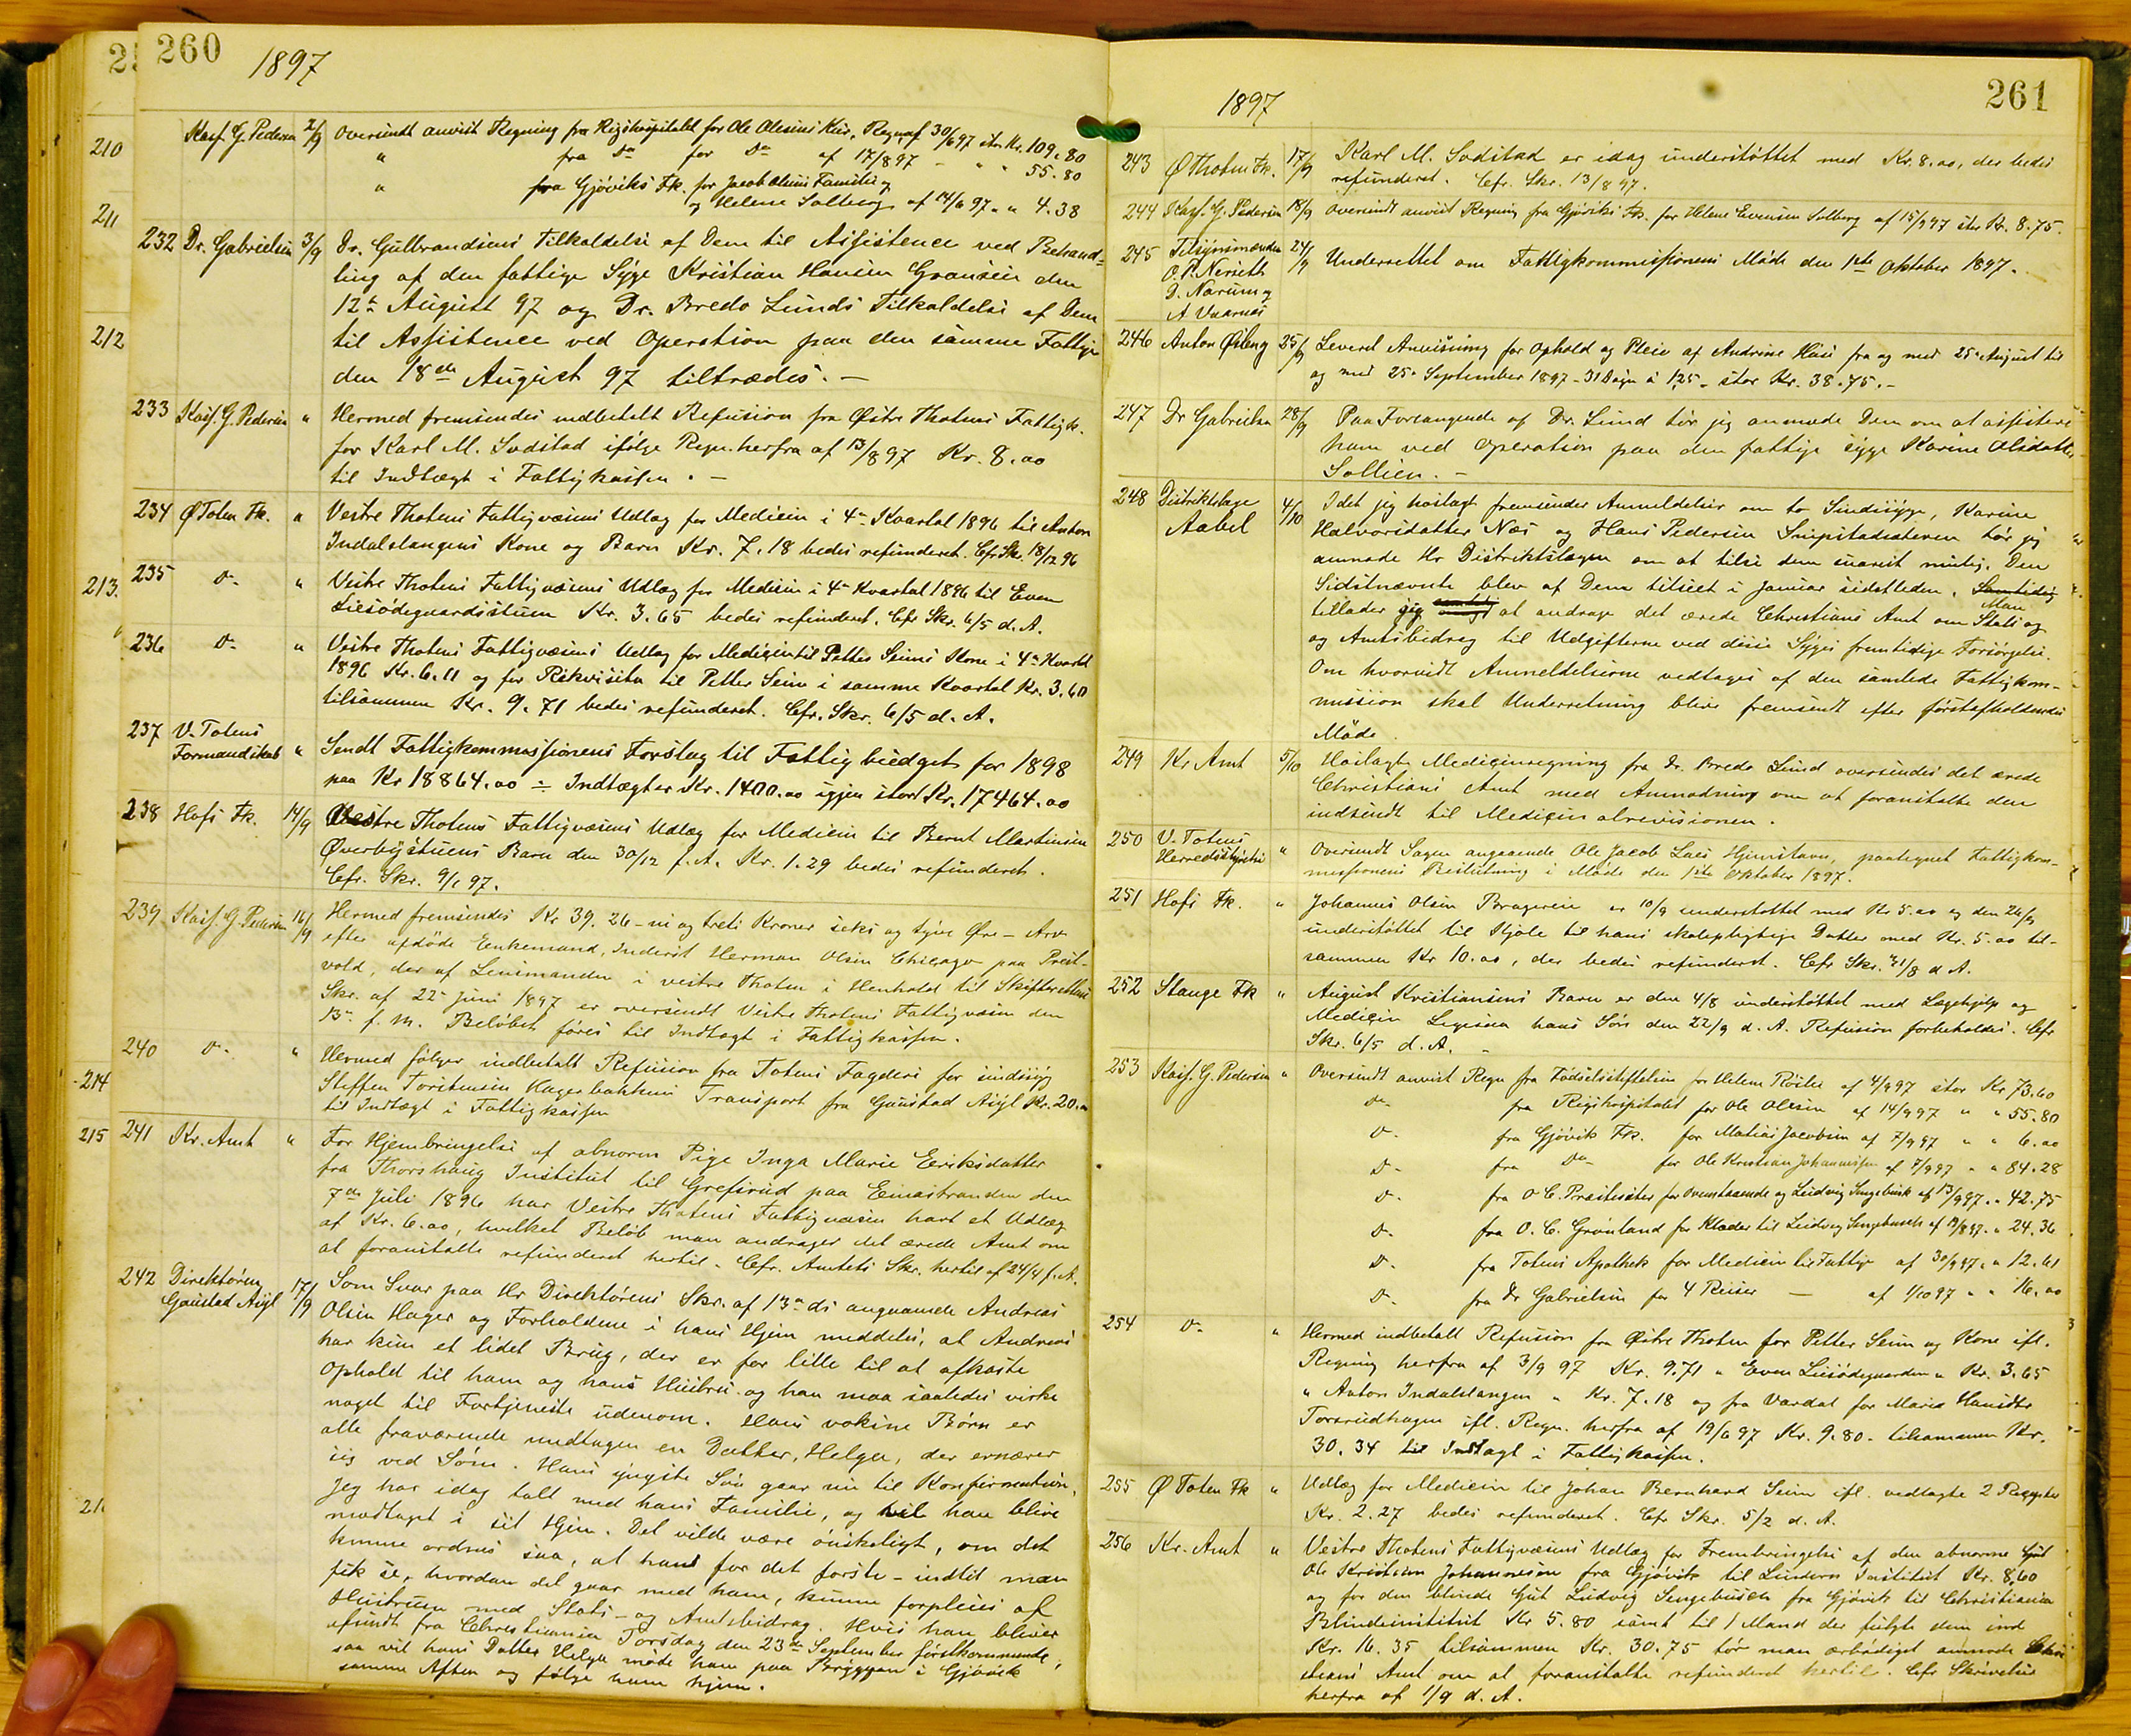 260
1897
210
Kasf. G. Pedersen 2/9 Oversendt anvist Regning fra Rigshospitalet for Ole Olesens Kur, Regn. af 30/6 97 stor Kr. 109.80
" fra Do for Do af 17/8 97 - " " 55.80
" fra Gjøviks Fk. for Jacob Familie og
og Helene Solberg af 14/6 97 " " 4.38
211
232 Dr. Gabrielsen 3/9 Dr. Gulbrandsens Tilkaldelse af Dem til Assistence ved Behand-
ling af den fattige Syge Kristian Hansen Gransein den
12te August 97 og Dr. Bredo Lunds Tilkaldelse af Dem
212
til Assistence ved Operation paa den samme Fattige
den 18de August 97 tiltrædes. —
233 Kasf. G. Pedersen " Hermed fremsendes indbetalt Refusion fra Østre Thotens Fattigk.
for Karl M. Sodstad ifølge Regn. herfra af 13/8 97 Kr. 8.00
til Indtægt i Fattigkassen. —
234 Ø Toten Fk. " Vestre Thotens Fattigvæsens Udlæg for Medicin i 4de Kvartal 1896 til Anton
Indalslangens Kone og Barn Kr. 7.18 bedes refunderet. Cfr. Sk. 18/12 96
213.
235 Do " Vestre Thotens Fattigvæsens Udlæg for Medicin i 4de Kvartal 1896 til Even
Liesødegaardsstuen Kr. 3.65 bedes refunderet. Cfr. Skr. 6/5 d. A.
236 Do " Vestre Thotens Fattigvæsens Udlæg for Medicin til Petter Seims Kone i 4de Kvartal
1896 Kr. 6.11 og for Rekvisita til Petter Seim i samme Kvartal Kr. 3.60
tilsammen Kr. 9.71 bedes refunderet. Cfr. Skr. 6/5 d. A.
237 V. Totens
Formandskab " Sendt Fattigkommissionens Forslag til Fattigbudget for 1898
paa Kr 18864.00 ÷ Indtægter Kr. 1400.00 igjen stort Kr. 17464.00
238 Hofs Fk. 14/9 Vestre Thotens Fattigvæsens Udlæg for Medicin til Bernt Martinsen
Øverbystuens Barn den 30/12 f. A. Kr. 1.29 bedes refunderet.
Cfr. Skr. 9/1 97.
239 Kasf. G. Pedersen 16/9 Hermed fremsendes Kr 39.26 – ni og treti Kroner seks og tyve Øre – Arv
efter afdøde Enkemand, Inderst Herman Olsen Chicago paa Prest-
vold, der af Lensmanden i vestre Thoten i Henhold til Skifterettens
Skr. af 22de Juni 1897 er oversendt Vestre Thotens Fattigvæsen den
13de f. M. Beløbet føres til Indtægt i Fattigkassen.
240 Do " Hermed følger indbetalt Refusion fra Totens Fogderi for sindssyg
214
Steffen Torstensen Hagerbakkens Transport fra Gaustad Asyl Kr. 20.00
til Indtægt i Fattigkassen
215
241 Kr. Amt " For Hjembringelse af abnorm Pige Inga Marie Eriksdatter
fra Thorshaug Institut til Grefsrud paa Einastranden den
7de Juli 1896 har Vestre Thotens Fattigvæsen havt et Udlæg
af Kr. 6.00, hvilket Beløb man andrager det ærede Amt om
at foranstalte refunderet hertil. Cfr. Amtets Skr. hertil af 24/4 f. A.
242 Direktøren
Gaustad Asyl 17/9 Som Svar paa Hr Direktørens Skr. af 13de ds angaaende Andreas
Olsen Hager og Forholdene i hans Hjem meddeles, at Andreas
har kun et lidet Brug, der er for lille til at afkaste
Ophold til ham og hans Hustru og han maa saaledes virke
noget til Fortjeneste udenom. Hans voksne Børn er
alle fraværende undtagen en Datter, Helga, der ernærer
sig ved Søm. Hans yngste Søn gaar nu til Konfirmation.
Jeg har idag talt med hans Familie, og vil han blive
modtaget i sit Hjem. Det vilde være ønskeligt, om det
kunne ordnes saa, at han for det første – indtil man
fik se, hvordan det gaar med ham, kunne forpleies af
Hustruen med Stats- og Amtsbidrag. Hvis han bliver
afsendt fra Christiania Torsdag den 23de September førstkommende,
saa vil hans Datter Helga møde ham paa Bryggen i Gjøvik
samme Aften og følge ham hjem.
261
1897
243 Ø Thoten Fk. 17/9 Karl M. Sodstad er idag understøttet med Kr. 8.00, der bedes
refunderet. Cfr. Skr. 13/8 97.
244 Kasf. G. Pedersen 18/9 Oversendt anvist Regning fra Gjøviks Fk. for Helene Evensen Solberg af 15/9 97 stor Kr. 8.75.
245 Tilsynsmænden
O. P. Nerseth
D. Narum og
A Vaarnæs 24/9 Underrettet om Fattigkommissionens Møde den 1ste Oktober 1897.
246 Anton Østeng 25/9 Leveret Anvisning for Ophold og Pleie af Andrine Huse fra og med 25de August til
og med 25de September 1897 – 31 Døgn à 1,25 – stor Kr. 38.75. –
247 Dr Gabrielsen 28/9 Paa Forlangende af Dr. Lund tør jeg anmode Dem om at assistere
ham ved Operation paa den fattige syge Karine Olsdatter
Sollien. –
248 Distriktslæge
Aabel 4/10 Idet jeg hoslagt fremsender Anmeldelser om to Sindssyge, Karine
Halvorsdatter Næs og Hans Pedersen Snipstadsæteren tør jeg
anmode Hr Distriktslægen om at tilse dem snarest mulig. Den
Sidstnævnte blev af Dem tilseet i Januar sidstleden. Samtidig
Man
tillader jeg at andrage det ærede Christians Amt om Stats og
og Amtsbidrag til Udgifterne ved disse Syges fremtidige Forsørgelse.
Om hvorvidt Anmeldelserne vedtages af den samlede Fattigkom-
mission skal Underretning blive fremsendt efter førstafholdendes
Møde.
249 Kr Amt 5/10 Hoslagte Medicinregning fra Dr. Bredo Lund oversendes det ærede
Christians Amt med Anmodning om at foranstalte den
indsendt til Medicinalrevisionen.
250 V. Totens
Herredsstyrelse " Oversendt Sagen angaaende Ole Jacob Laes Hjemstavn, paategnet Fattigkom-
missionens Beslutning i Møde den 1ste Oktober 1897.
251 Hofs Fk. " Johannes Olsen Brageren er 10/9 understøttet med Kr 5.00 og den 24/9
understøttet til Kjole til hans skolepligtige Datter med Kr. 5.00 til-
sammen Kr 10.00, der bedes refunderet. Cfr Skr. 31/8 d A.
252 Stange Fk " August Kristiansens Barn er den 4/8 understøttet med Lægehjelp og
Medicin Ligesaa hans Søn den 22/9 d. A. Refusion forbeholdes. Cfr
Skr. 6/5 d. A. –
253 Kasf. G. Pedersen " Oversendt anvist Regn fra Fødselsstiftelsen for Helene Røste af 4/9 97 stor Kr 73.60
Do fra Rigshospitalet for Ole Olesen af 14/9 97 " " 55.80
Do fra Gjøvik Fk. for Matias Jacobsen af 7/9 97 " " 6.00
Do fra Do for Ole Kristian Johannessen af 7/9 97 " " 84.28
Do fra O C. Præstesæter for Ovenstaaende og Ludvig Sengebusch af 13/9 97 " 42.75
Do fra O. C. Grønland for Klæder til Ludvig Sengebusch af 19/8 97 " 24.36
Do fra Totens Apothek for Medicin til Fattige af 30/9 97 " " 12.61
Do fra Dr Gabrielsen for 4 Reiser — af 1/10 97 " " 16.00
254 Do " Hermed indbetalt Refusion fra Østre Thoten for Petter Seim og Kone ifl.
Regning herfra af 3/9 97 Kr. 9.71 " Even Liesødegaarden " Kr. 3.65
" Anton Indalslangen " Kr. 7.18 og fra Vardal for Maria Hansdtr
Torsrudhagen ifl. Regn. herfra af 19/6 97 Kr. 9.80 – tilsammen Kr.
30.34 til Indtægt i Fattigkassen.
255 Ø Toten Fk " Udlæg for Medicin til Johan Bernhard Seim ifl. vedlagte 2 Recepter
Kr. 2.27 bedes refunderet. Cfr Skr. 5/2 d. A.
256 Kr. Amt " Vestre Thotens Fattigvæsens Udlæg for Frembringelse af den abnorme Gut
Ole Kristian Johannessen fra Gjøvik til Lindern Institut Kr. 8,60
og for den blinde Gut Ludvig Sengebusch fra Gjøvik til Christiania
Blindeinstitut Kr 5.80 samt til 1 Mand der fulgte dem ind
Kr. 16.35 tilsammen Kr. 30.75 tør man ærbødigst anmode Chri
stians Amt om at foranstalte refunderet hertil. Cfr Skrivelse
herfra af 1/9 d. A.